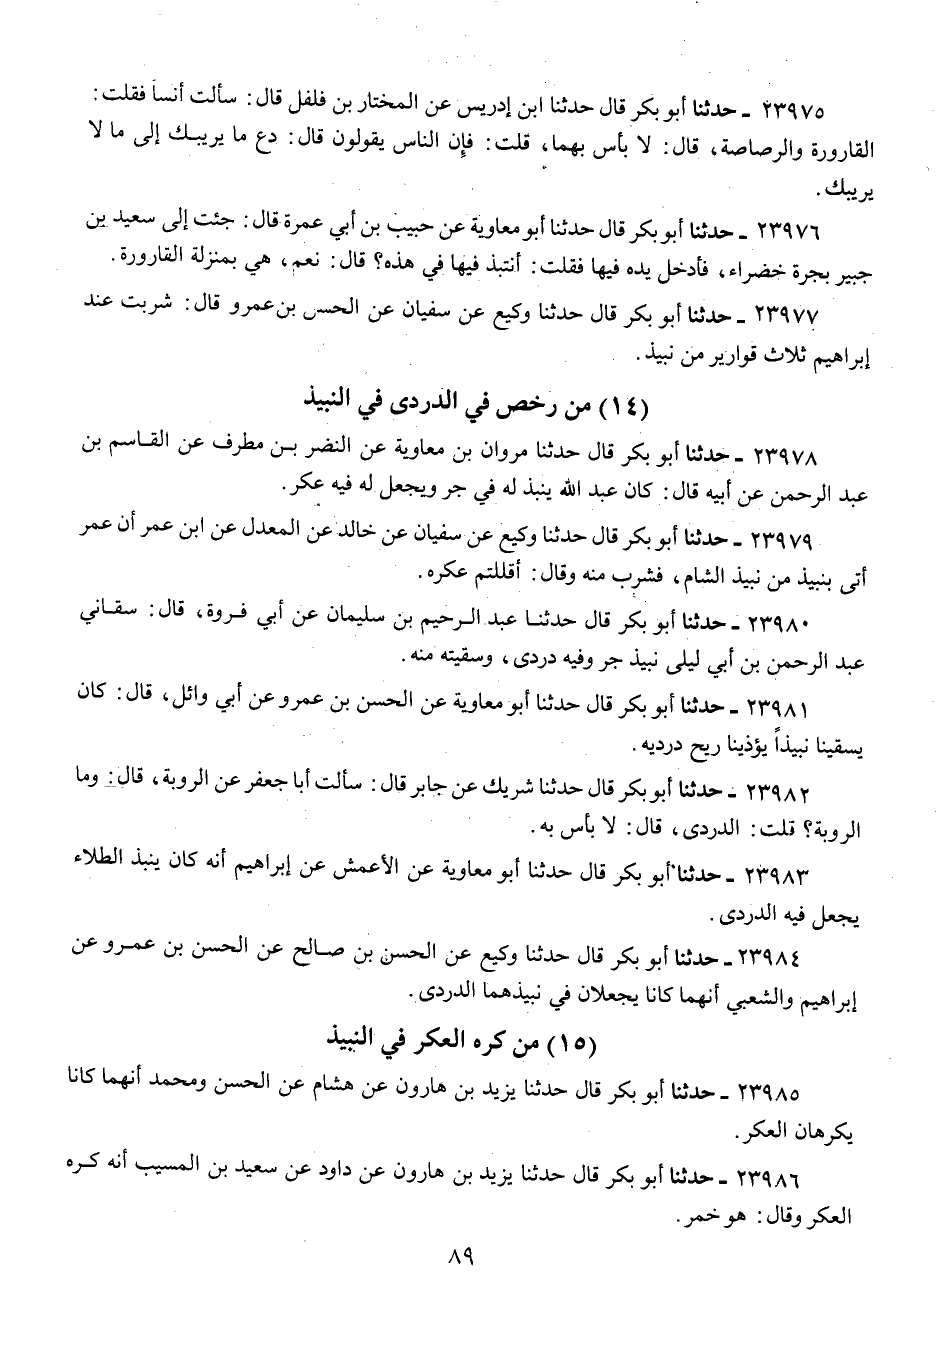 ٢٣٩٧٥ ـ حدثنا أبو بكر قال حدثنا ابن إدريس عن المختار بن فلفل قال: سألت أنساً فقلت:
القارورة والرصاصة، قال: لا بأس بهما، قلت: فإن الناس يقولون قال: دع ما يريبك إلى ما لا
يريبك.
٢٣٩٧٦ ـ حدثنا أبو بكر قال حدثنا أبو معاوية عن حبيب بن أبي عمرة قال: جئت إلى سعيد بن
جبير بجرة خضراء، فأدخل يده فيها فقلت: أنتبذ فيها في هذه؟ قال: نعم، هي بمنزلة القارورة.
٢٣٩٧٧ ـ حدثنا أبو بكر قال حدثنا وكيع عن سفيان عن الحسن بن عمرو قال: شربت عند
إبراهيم ثلاث قوارير من نبيذ.
(١٤) من رخص في الدردى في النبيذ
٢٣٩٧٨ ـ حدثنا أبو بكر قال حدثنا مروان بن معاوية عن النضر بن مطرف عن القاسم بن
عبد الرحمن عن أبيه قال: كان عبد الله ينبذ له في جر ويجعل له فيه عكر.
٢٣٩٧٩ ـ حدثنا أبو بكر قال حدثنا وكيع عن سفيان عن خالد عن المعدل عن ابن عمر أن عمر
أتى بنبيذ من نبيذ الشام، فشرب منه وقال: أقللتم عكره.
٢٣٩٨٠ ـ حدثنا أبو بكر قال حدثنا عبد الرحيم بن سليمان عن أبي فروة، قال: سقاني
عبد الرحمن بن أبي ليلى نبيذ جر وفيه دردى، وسقيته منه.
٢٣٩٨١ ـ حدثنا أبو بكر قال حدثنا أبو معاوية عن الحسن بن عمرو عن أبي وائل، قال: كان
يسقينا نبيذاً يؤذينا ريح درديه.
٢٣٩٨٢ ـ حدثنا أبو بكر قال حدثنا شريك عن جابر قال: سألت أبا جعفر عن الروبة، قال: وما
الروبة؟ قلت: الدردى، قال: لا بأس به.
٢٣٩٨٣ ـ حدثنا أبو بكر قال حدثنا أبو معاوية عن الأعمش عن إبراهيم أنه كان ينبذ الطلاء
يجعل فيه الدردى.
٢٣٩٨٤ ـ حدثنا أبو بكر قال حدثنا وكيع عن الحسن بن صالح عن الحسن بن عمرو عن
إبراهيم والشعبي أنهما كانا يجعلان في نبيذهما الدردى.
(١٥) من كره العكر في النبيذ
٢٣٩٨٥ ـ حدثنا أبو بكر قال حدثنا يزيد بن هارون عن هشام عن الحسن ومحمد أنهما كانا
يكرهان العكر.
٢٣٩٨٦ ـ حدثنا أبو بكر قال حدثنا يزيد بن هارون عن داود عن سعيد بن المسيب أنه كره
العكر وقال: هو خمر.
٨٩